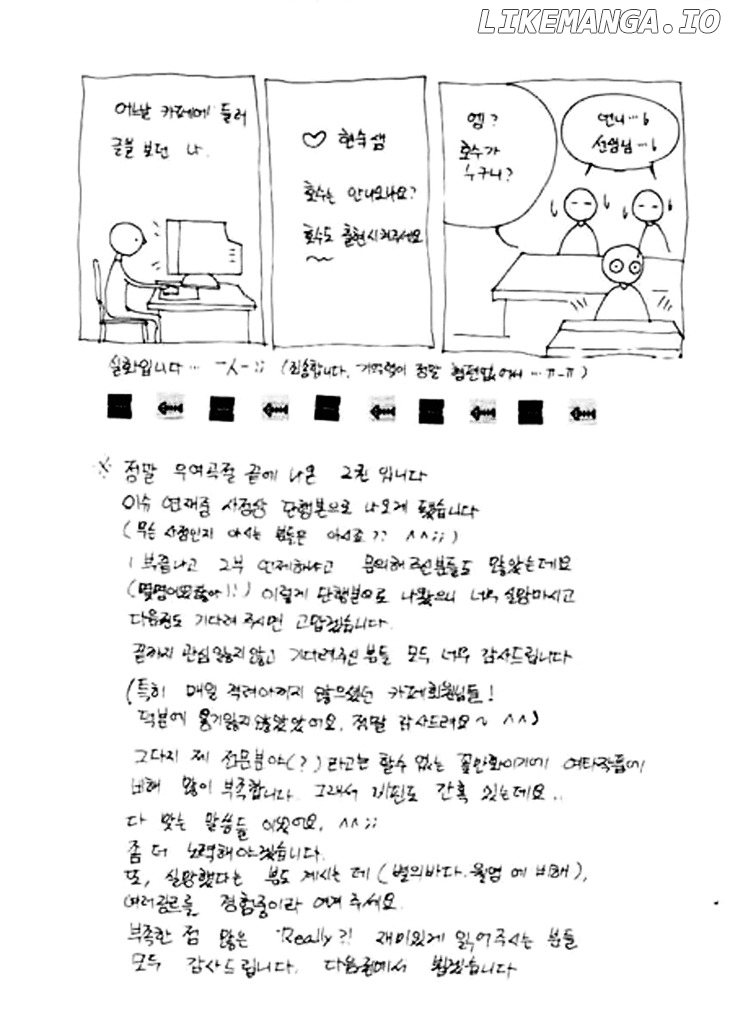 LIKEMANGA.IO
어느날 카페에 들러
글을 보던 나.
♡ 현숙샘
호수는 안나오나요?
호수도 출현시켜주세요
~~
엥?
호수가
누구니?
언니…
선생님…
실화입니다… ㅡㅅㅡ;; (죄송합니다. 기억력이 정말 형편없어서…ㅠ-ㅠ)
※ 정말 우여곡절 끝에 나온 2권 입니다
이슈 연재중 사정상 단행본으로 나오게 됐습니다
(무슨 사정인지 아시는 분들은 아시죠?? ^^;;)
1부끝나고 2부 언제하냐고 문의해 주신분들도 많았는데요
이렇게 단행본으로 나왔으니 너무 실망마시고
다음권도 기다려 주시면 고맙겠습니다.
끝까지 관심 잃지않고 기다려주신 분들 모두 너무 감사드립니다
(특히 매일 격려아끼지 않으셨던 카페회원님들!
덕분에 용기잃지않았었어요. 정말 감사드려요~ ^^)
그다지 제 전문분야(?)라고는 할수 없는 꽃만화이기에 여타작품에
비해 많이 부족합니다. 그래서 비판도 간혹 있는데요..
다 맞는 말씀들 이였어요. ^^;;
좀 더 노력해야겠습니다.
또, 실망했다는 분도 계시는 데 (별의바다.월영 에 비해),
여러장르를 경험중이라 여겨 주세요.
부족한 점 많은 "Really?! 재미있게 읽어주시는 분들
모두 감사드립니다. 다음권에서 뵙겠습니다